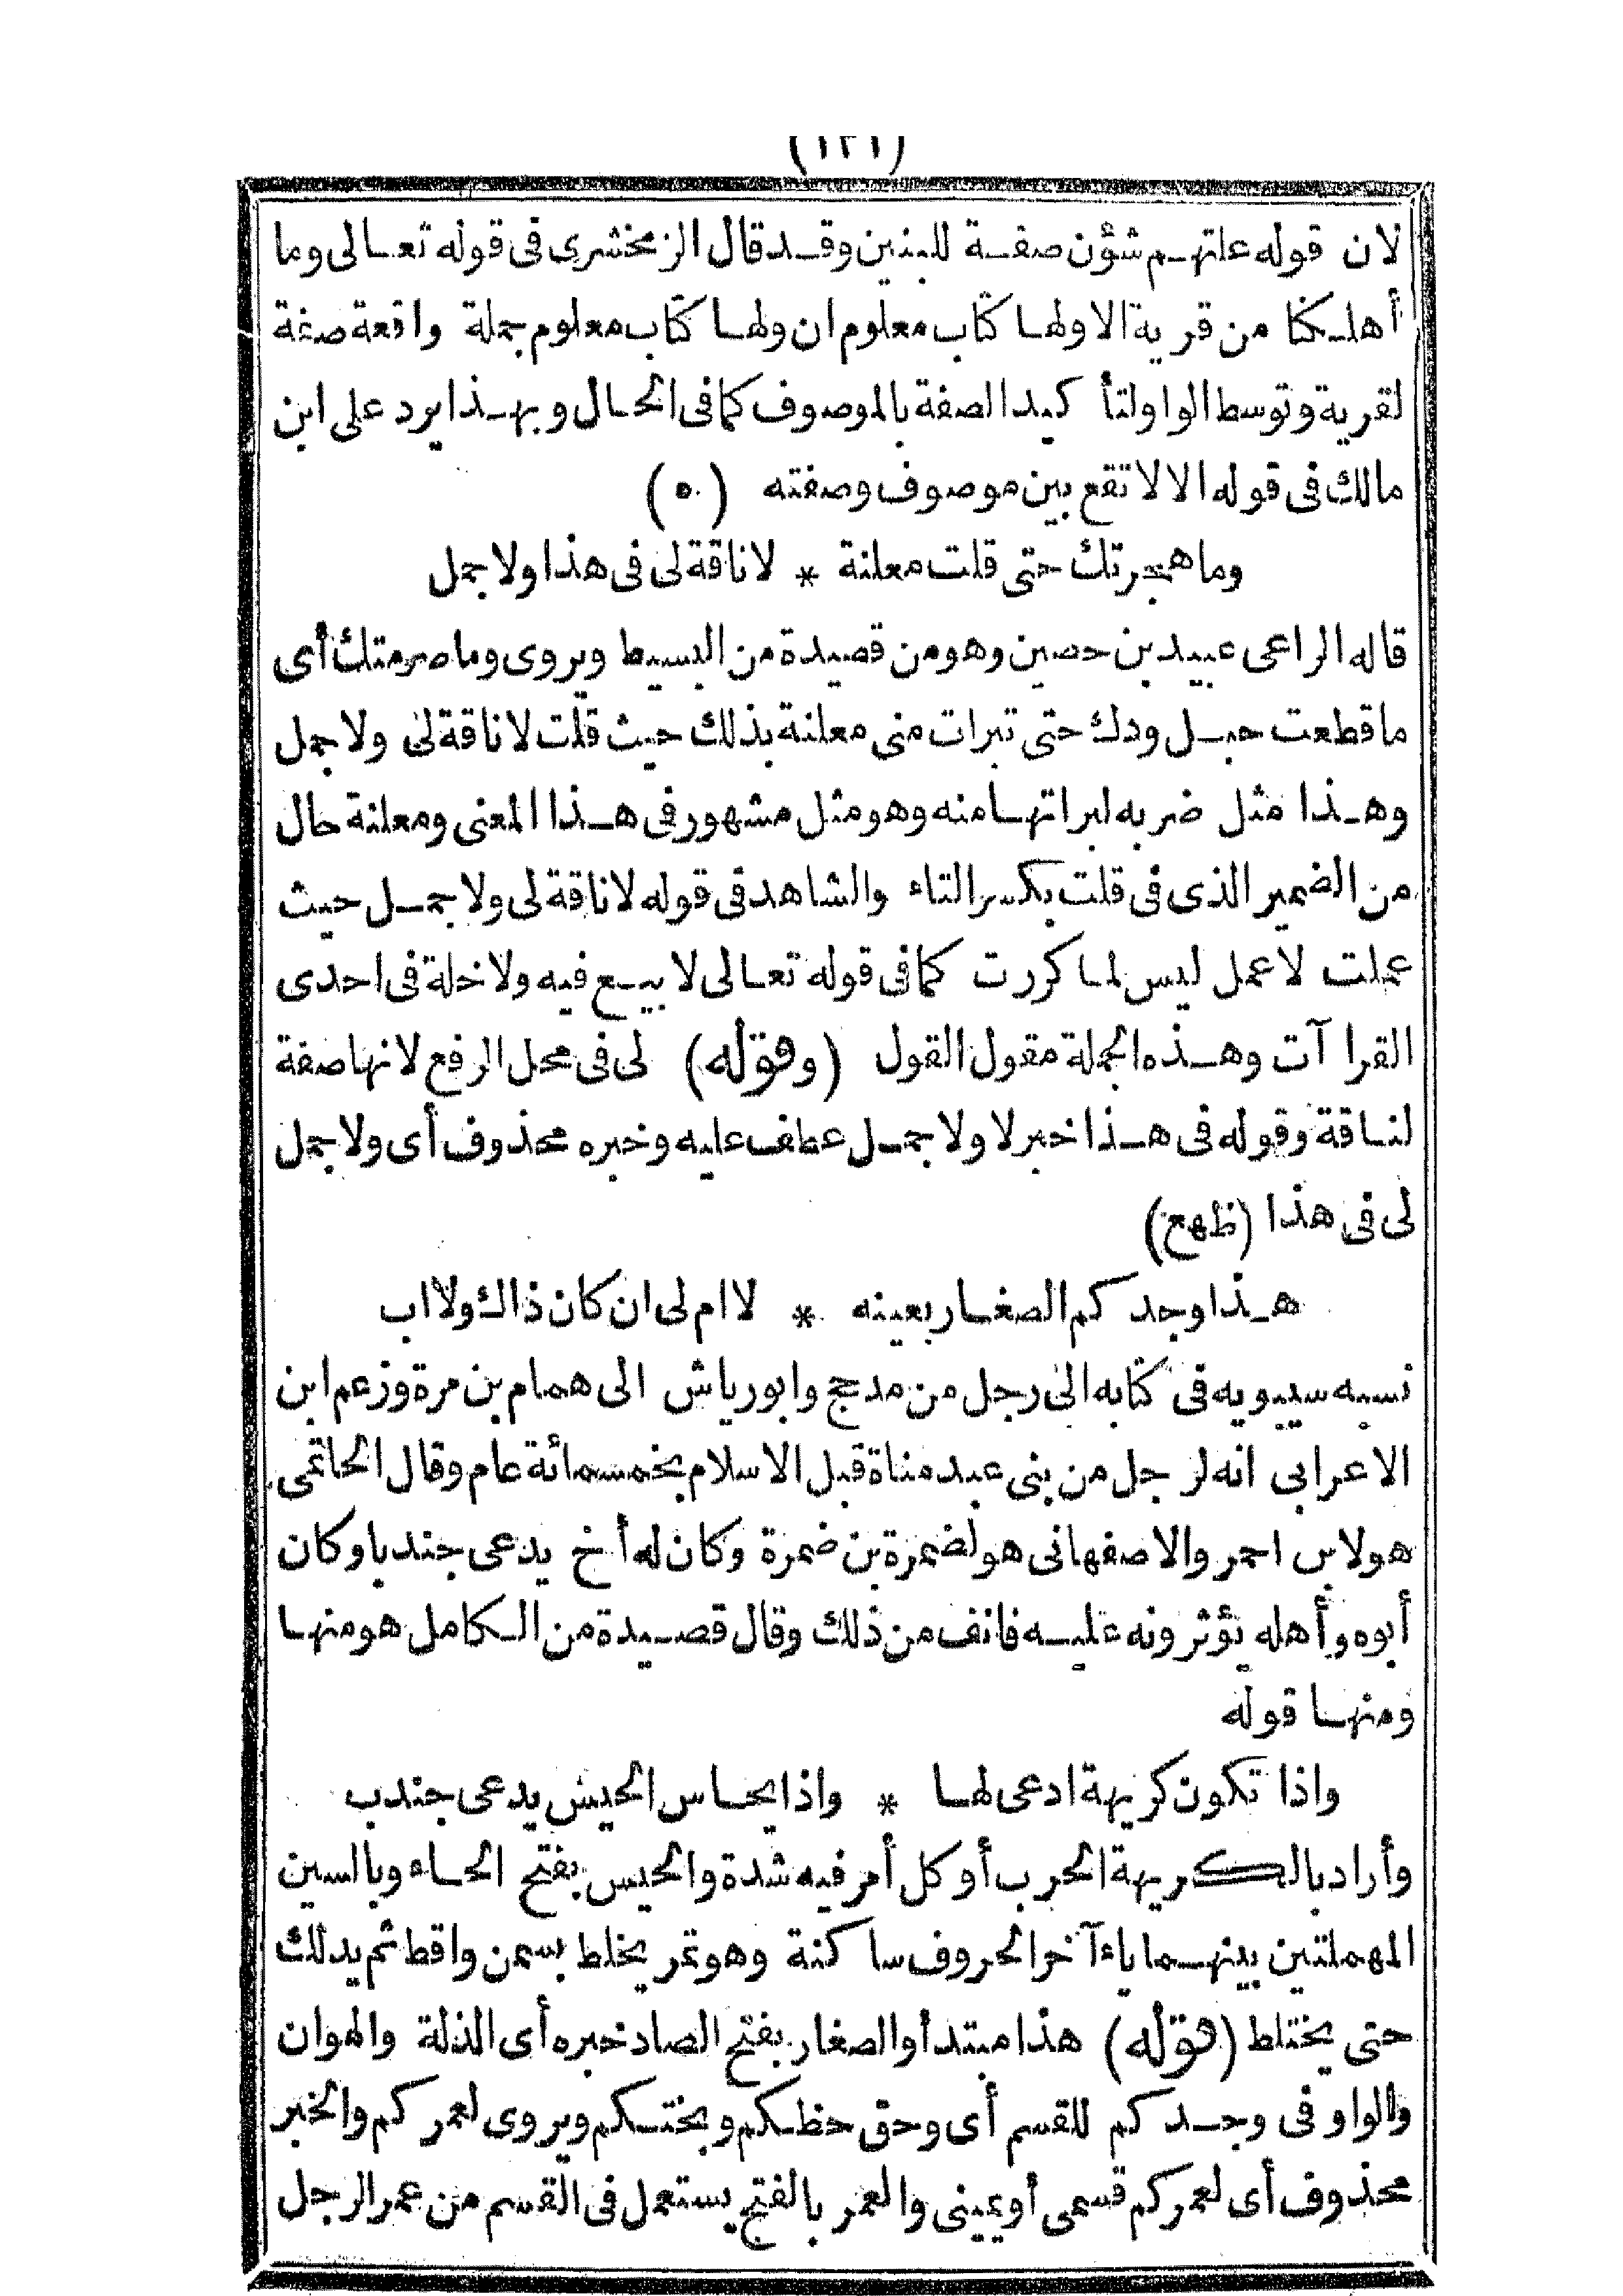 (١٢١)
لان قوله علتهم شؤن صفة للبنين وقد قال الزمخشرى فى قوله تعالى وما
أهلكنا من قرية الا ولها كتاب معلوم ان ولها كتاب معلوم جملة واقعة صفة
لقرية وتوسط الواو لتأكيد الصفة بالموصوف كما فى الحال وبهذا يرد على ابن
مالك فى قوله الا لا تقع بين موصوف وصفته (ه)
وما هجرتك حتى قلت معلنة * لا ناقة لى فى هذا ولا جمل
قاله الراعى عبيد بن حصين وهو من قصيدة من البسيط ويروى وما صرمتك أى
ما قطعت حبل ودك حتى تبرات منى معلنة بذلك حيث قلت لا ناقة لى ولا جمل
وهذا مثل ضربه لبراتها منه وهو مثل مشهور فى هذا المعنى ومعلنة حال
من الضمير الذى فى قلت بكسر التاء والشاهد فى قوله لا ناقة لى ولا جمل حيث
عملت لا عمل ليس لما كررت كما فى قوله تعالى لا بيع فيه ولا خلة فى احدى
القرا آت وهذه الجملة مقول القول (وقوله) لى فى محل الرفع لانها صفة
لناقة وقوله فى هذا خبر لا ولا جمل عطف عليه وخبره محذوف أى ولا جمل
لى فى هذا (ظهع)
هذا وجدكم الصغار بعينه * لا ام لى ان كان ذاك ولا اب
نسبه سيبويه فى كتابه الى رجل من مدحج وابو رياش الى همام بن مرة وزعم ابن
الاعرابى انه لرجل من بنى عبد مناة قبل الاسلام بخمسمائة عام وقال الحاتمى
هو لابن احمر والاصفهانى هو لضمرة بن ضمرة وكان له أخ يدعى جندبا وكان
أبوه وأهله يؤثرونه عليه فانف من ذلك وقال قصيدة من الكامل هو منها
ومنها قوله
واذا تكون كريهة ادعى لها * واذا يحاس الحيش يدعى جندب
وأراد بالكريهة الحرب أو كل أمر فيه شدة والحيس بفتح الحاء وبالسين
المهملتين بينهما ياء آخر الحروف ساكنة وهو تمر يخلط بسمن واقط ثم يدلك
حتى يختلط (قوله) هذا مبتدأ والصغار بفتح الصاد خبره أى الذلة والهوان
والواو فى وجدكم للقسم أى وحق حظكم وبختكم ويروى لعمركم والخبر
محذوف أى لعمركم قسمى أو يمينى والعمر بالفتح يستعمل فى القسم من عمر الرجل